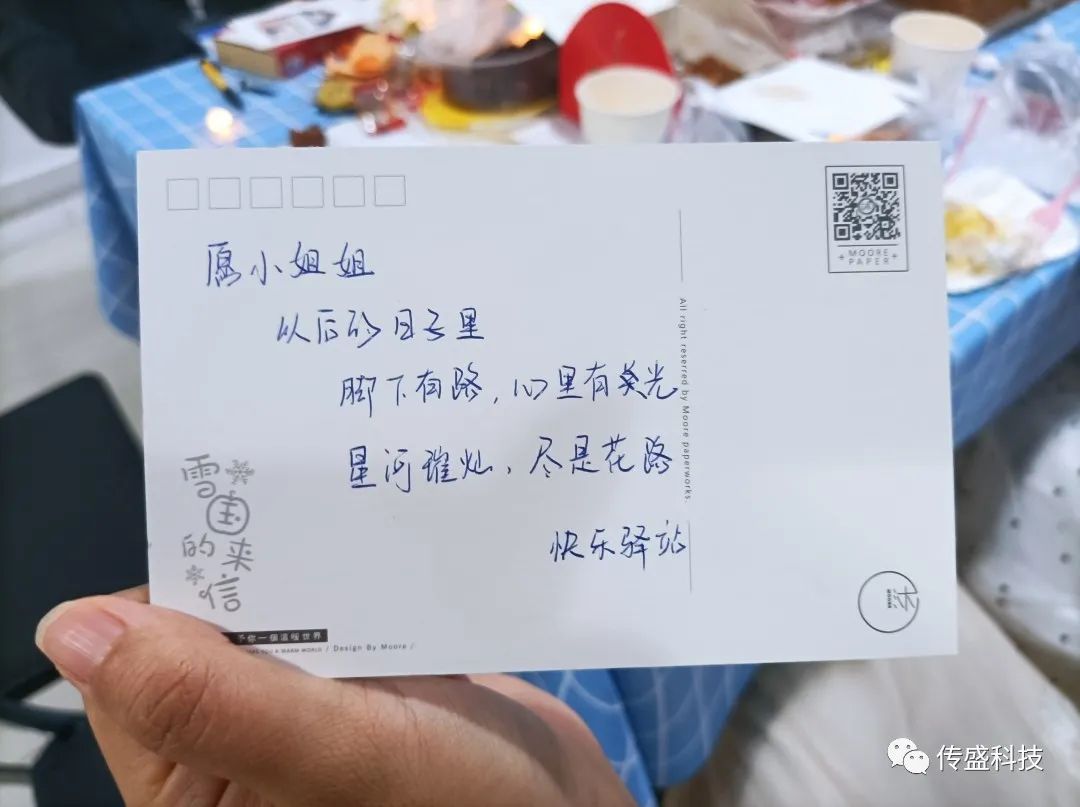 MOORE
PAPER
愿小姐姐
以后的日子里
脚下有路，心里有美光
星河璀灿，尽是花路
快乐驿站
All right reserred by Moore paperworks.
雪国
的来
信
予你一個溫暖世界
YOU A WARM WORLD / Design By Moore /
传盛科技